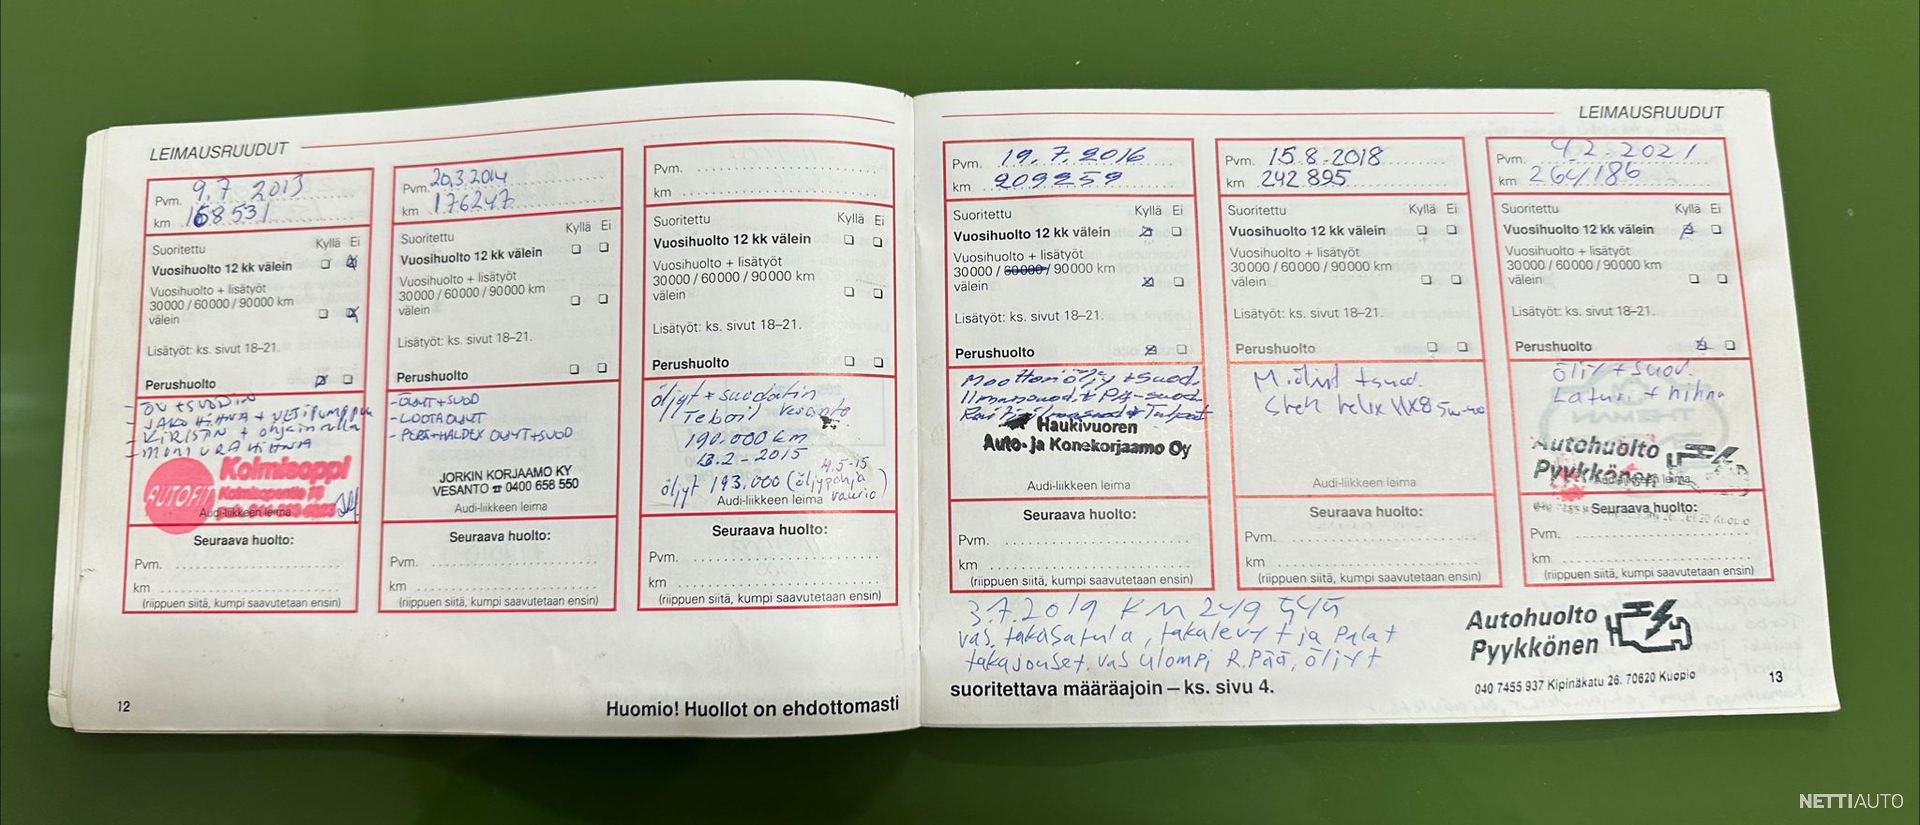 LEIMAUSRUUDUT
Pvm. 9.7 2013
km 168531
Suoritettu Kyllä Ei
Vuosihuolto 12 kk välein
Vuosihuolto + lisätyöt
30 000 / 60 000 / 90 000 km
välein
Lisätyöt: ks. sivut 18–21.
Perushuolto
- ÖV + SUODIN
- JAKOHIHNA + VESIPUMPPU
- KIRISTIN + ohjainrulla
- MONIURAHIHNA
AUTOFIT
Kolmisoppi
Audi-liikkeen leima
Seuraava huolto:
Pvm.
km
(riippuen siitä, kumpi saavutetaan ensin)
Pvm. 20.3.2014
km 176247
Suoritettu Kyllä Ei
Vuosihuolto 12 kk välein
Vuosihuolto + lisätyöt
30 000 / 60 000 / 90 000 km
välein
Lisätyöt: ks. sivut 18–21.
Perushuolto
- ÖLJYT + SUOD
- LOOTAÖLJYT
- PERÄ+HALDEX ÖLJYT+SUOD
JORKIN KORJAAMO KY
VESANTO ☎ 0400 658 550
Audi-liikkeen leima
Seuraava huolto:
Pvm.
km
(riippuen siitä, kumpi saavutetaan ensin)
Pvm.
km
Suoritettu Kyllä Ei
Vuosihuolto 12 kk välein
Vuosihuolto + lisätyöt
30 000 / 60 000 / 90 000 km
välein
Lisätyöt: ks. sivut 18–21.
Perushuolto
öljyt + suodatin
Teboil Vesanto
190.000 km
13.2 - 2015
4.5-15
öljyt 193.000 (öljypohja
vaurio)
Audi-liikkeen leima
Seuraava huolto:
Pvm.
km
(riippuen siitä, kumpi saavutetaan ensin)
12
Huomio! Huollot on ehdottomasti
LEIMAUSRUUDUT
Pvm. 19.7.2016
km 209259
Suoritettu Kyllä Ei
Vuosihuolto 12 kk välein
Vuosihuolto + lisätyöt
30 000 / 60 000 / 90 000 km
välein
Lisätyöt: ks. sivut 18–21.
Perushuolto
Moottoriöljy + suod.
Ilmansuod. + PA-suod.
Haukivuoren
Auto- ja Konekorjaamo Oy
Audi-liikkeen leima
Seuraava huolto:
Pvm.
km
(riippuen siitä, kumpi saavutetaan ensin)
Pvm. 15.8.2018
km 242 895
Suoritettu Kyllä Ei
Vuosihuolto 12 kk välein
Vuosihuolto + lisätyöt
30 000 / 60 000 / 90 000 km
välein
Lisätyöt: ks. sivut 18–21.
Perushuolto
M.öljyt + suod.
Shell helix HX8 5w-40
Audi-liikkeen leima
Seuraava huolto:
Pvm.
km
(riippuen siitä, kumpi saavutetaan ensin)
Pvm. 4.2.2021
km 264186
Suoritettu Kyllä Ei
Vuosihuolto 12 kk välein
Vuosihuolto + lisätyöt
30 000 / 60 000 / 90 000 km
välein
Lisätyöt: ks. sivut 18–21.
Perushuolto
öljy + suod.
Laturi + hihna
Autohuolto
Pyykkönen
Audi-liikkeen leima
Seuraava huolto:
Pvm.
km
(riippuen siitä, kumpi saavutetaan ensin)
3.7.2019 KM 249
vas. takasatula, takalevyt ja Palat
takajouset. vas ulompi R.Pää, öljyt
Autohuolto
Pyykkönen
040 7455 937 Kipinäkatu 26, 70620 Kuopio
suoritettava määräajoin – ks. sivu 4.
13
NETTIAUTO